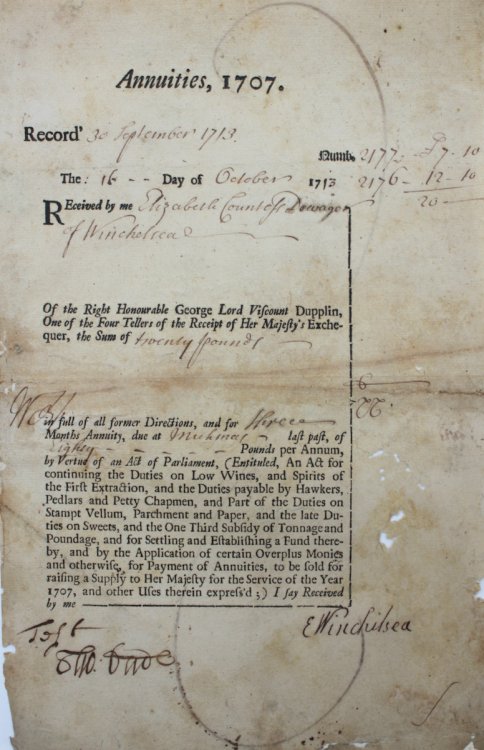 Annuities, 1707.
Record' 30 September 1713
Numb. 2177 - £7 - 10
The: 16 - - Day of October 1713 2176 - 12 - 10
20 -
REceived by me Elizabeth Countess Dowager
of Winchelsea
Of the Right Honourable George Lord Viscount Dupplin,
One of the Four Tellers of the Receipt of Her Majesty's Exche-
quer, the Sum of twenty pounds
in full of all former Directions, and for three
Months Annuity, due at Michmas last past, of
Eighty - - - Pounds per Annum,
by Vertue of an Act of Parliament, (Entituled, An Act for
continuing the Duties on Low Wines, and Spirits of
the First Extraction, and the Duties payable by Hawkers,
Pedlars and Petty Chapmen, and Part of the Duties on
Stampt Vellum, Parchment and Paper, and the late Du-
ties on Sweets, and the One Third Subsidy of Tonnage and
Poundage, and for Settling and Establishing a Fund there-
by, and by the Application of certain Overplus Monies
and otherwise, for Payment of Annuities, to be sold for
raising a Supply to Her Majesty for the Service of the Year
1707, and other Uses therein express'd;) I say Received
by me
EWinchilsea
Test